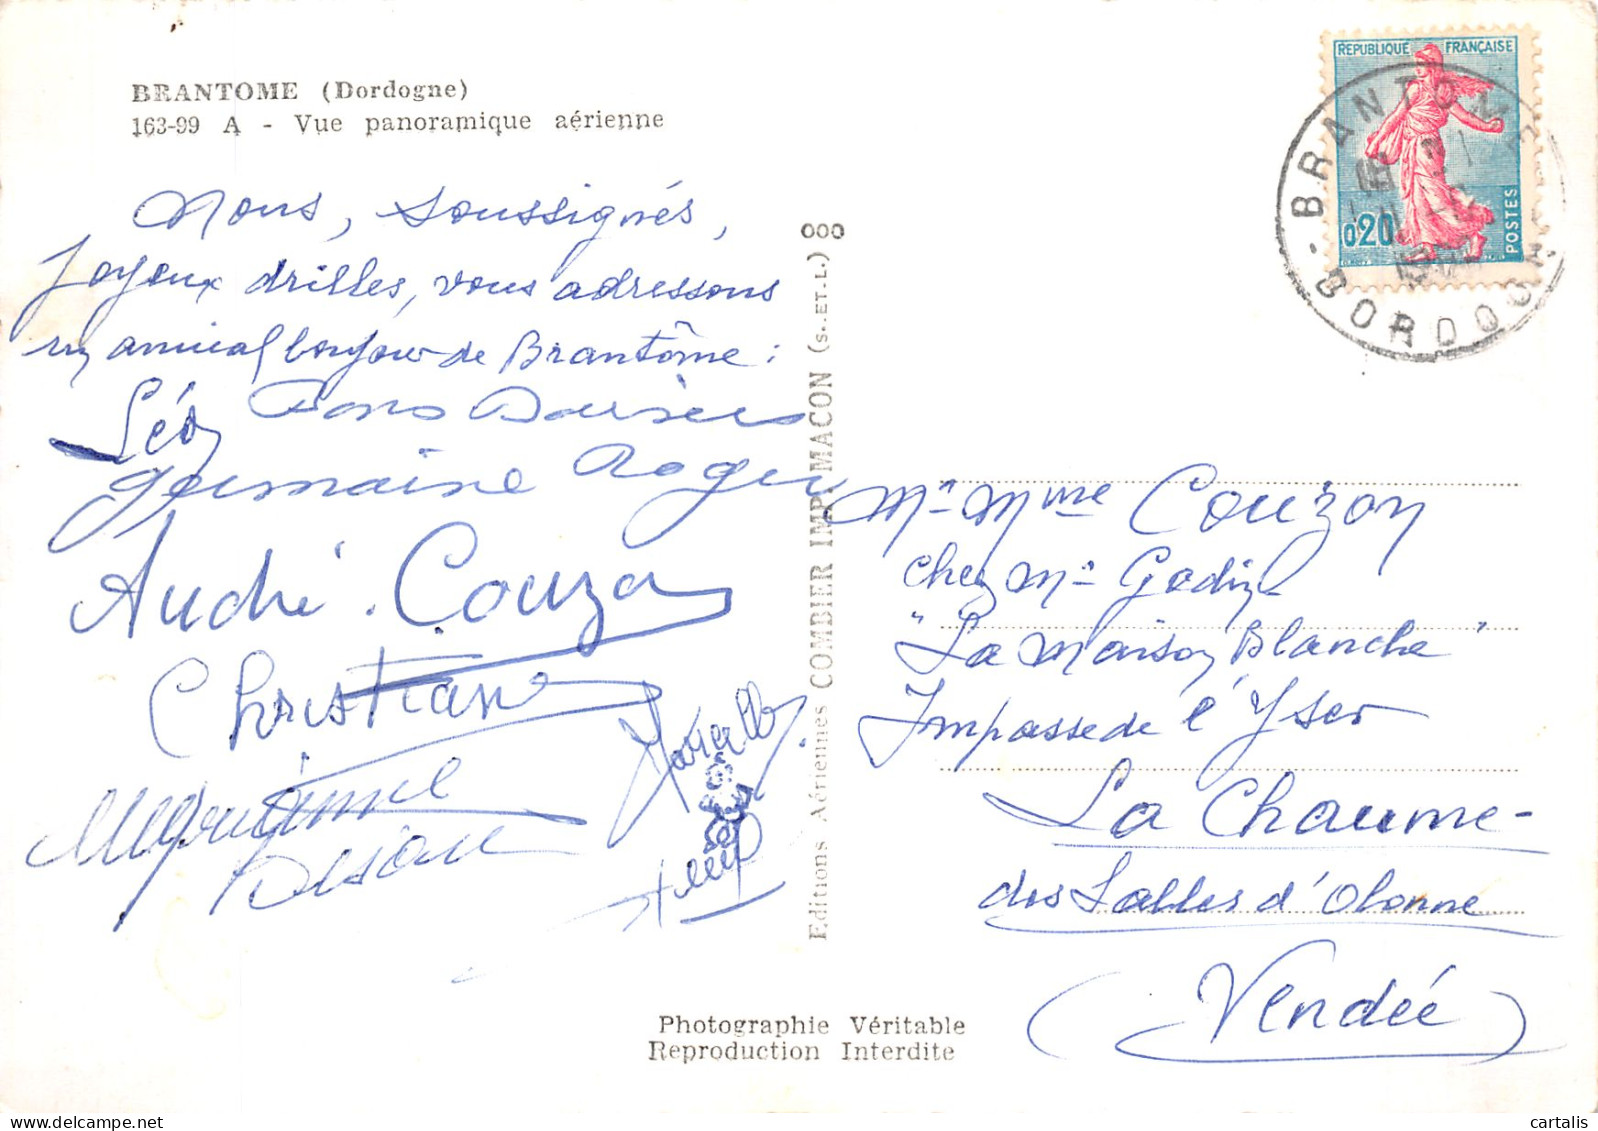 BRANTOME (Dordogne)
163-99 A - Vue panoramique aérienne
Nous, soussignés,
joyeux drilles, vous adressons
un amical bonjour de Brantôme :
Léon
Germaine Roger
André Couzon
Christiane
Editions Aériennes COMBIER IMP. MACON (S. ET L.) 000
REPUBLIQUE FRANÇAISE
0,20
POSTES
BRANTOME
DORDOGNE
Mr Mme Couzon
chez Mr Godin
"La Maison Blanche"
Impasse de l'Yser
La Chaume-
des Sables d'Olonne
(Vendée)
Photographie Véritable
Reproduction Interdite
cartalis